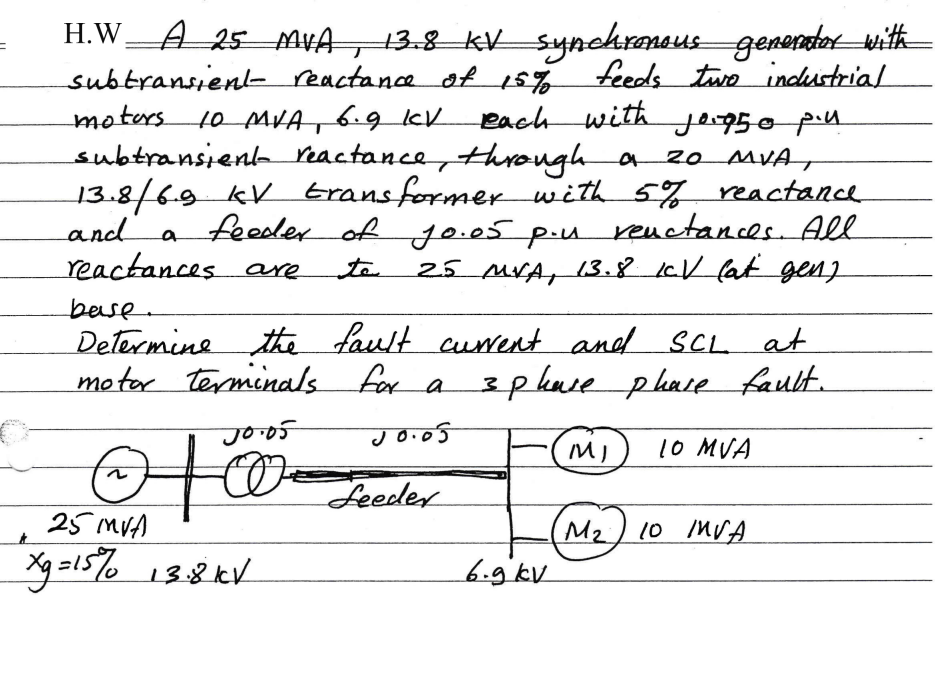 H.W A 25 MVA, 13.8 kV synchronous generator with
subtransient reactance of 15% feeds two industrial
motors 10 MVA, 6.9 kV each with p.u
subtransient reactance, through a 20 MVA,
13.8/6.9 kV transformer with 5% reactance
and a feeder of j0.05 p.u reuctances. All
reactances are to 25 MVA, 13.8 kV (at gen)
base.
Determine the fault current and SCL at
motor terminals for a 3 phase phase fault.
j0.05 j0.05
M1 10 MVA
~
feeder
25 MVA
M2 10 MVA
Xg=15% 13.8 kV 6.9 kV